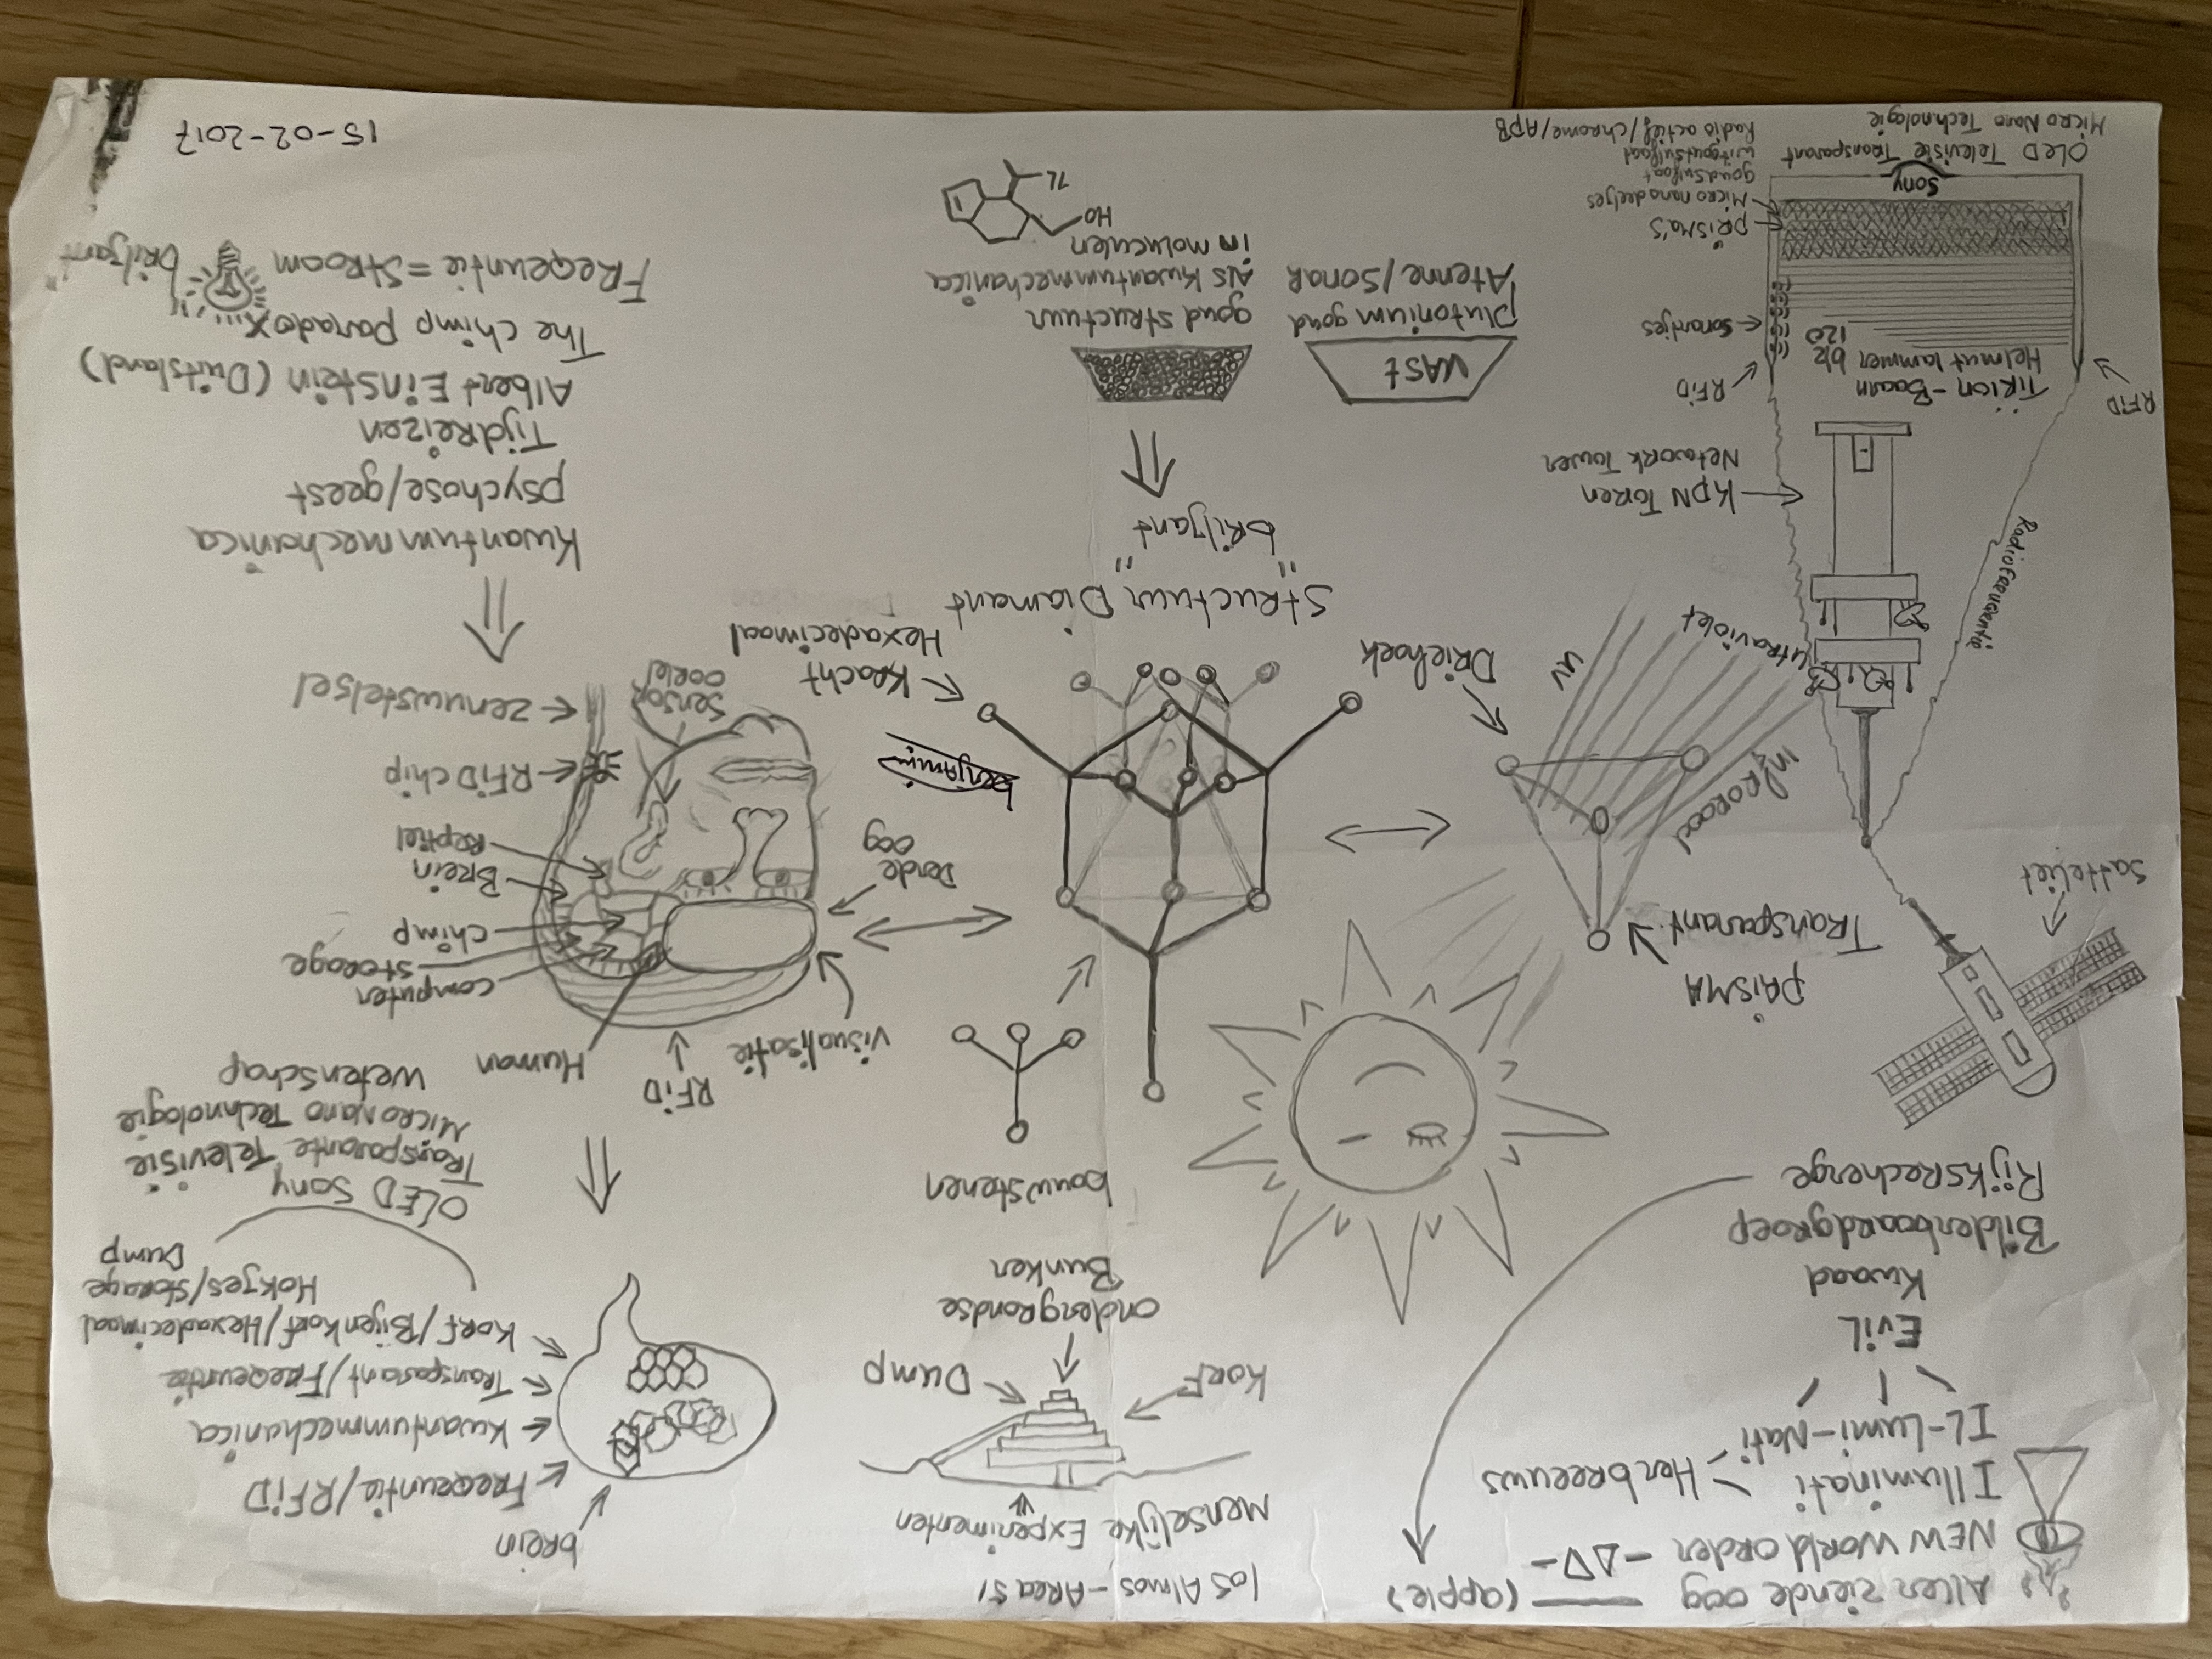 Aller ziende oog (apple)
NEW World order -ΔV-
Illuminati
Herbreeuws
IL-Lumi-Nati
Evil
Kwaad
Bilderboardgroep
Rijksrecherge
los Almos - Area 51
Menselijke Experimenten
Korf
Dump
ondergrondse
Bunker
bouwstenen
brein
Freqeuntie/RFiD
Kwantummechanica
Transparant/Freqeuntie
Korf/Bijenkorf/Hexadecimaal
Hokjes/Storage
Dump
OLED Sony
Transparante Televisie
Micro Nano Technologie
wetenschap
Satteliet
PRiSMA
Transparant
Driehoek
Infrorood
utraviolet
UV
Radiofreqeuntie
KPN Toren
Network Tower
RFiD
RFiD
Tirion-Baarn
Helmut lammer
blz
120
Sonartjes
PRiSMA'S
Micro nanodeeltjes
goudsulfaat
witgoutsulfaat
Radio actief/chrome/APB
Sony
OLED Televisie Transparant
Micro Nano Technologie
visualisatie
RFiD
Human
computer
storage
chimp
Brein
Reptiel
RFiD chip
zenuwstelsel
Derde
oog
Sensor
oorlel
benjamin
Kracht
Hexadecimaal
Structuur Diamant
"briljant"
VASt
plutonium goud
Atenne/Sonar
goud structuur
Als Kwantummechanica
in moluculen
HO
Kwantummechanica
psychose/geest
Tijdreizen
Albert Einstein (Duitsland)
The chimp paradox
Freqeuntie = Stroom
briljant
15-02-2017